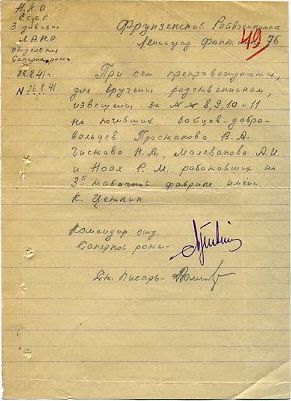 Н.К.О
С С С Р
3 дивизия
Л.А.Н.О
26.8.41 г.
№ 26.8.41
Фрунзенский Райвоенкомат
Ленинград Фонт. 76
49
При сем препровождаются,
для вручения родственникам,
извещения за №№ 8, 9, 10 и 11
на погибших бойцов-добро-
вольцев Проскакова В.А.
Чискова Н.А., Малеванова А.И
и Ноля Р.М. работавших на
3ей табачной фабрике имени
К. Цеткин
Командир отд.
Саперной роты-
Писарь-